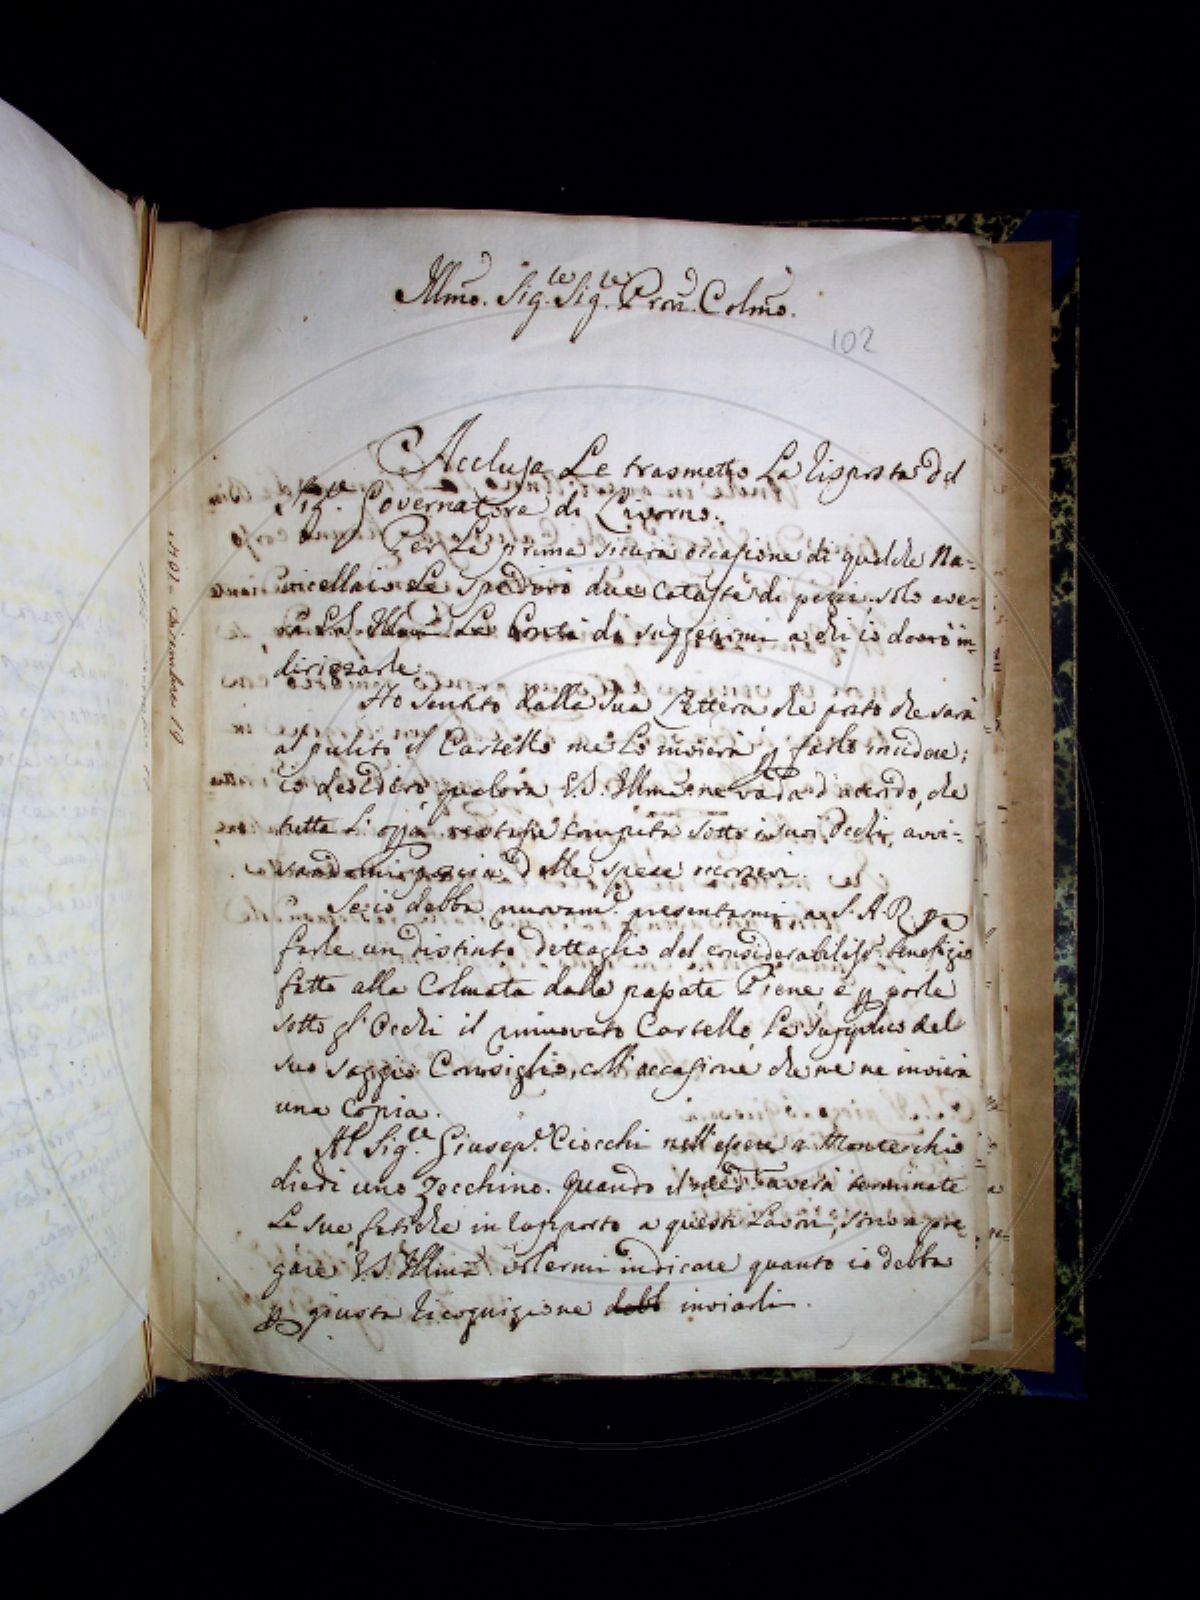 Illmo. Sig.re Sig.re Pron. Colmo.
102
Acclusa Le trasmetto La risposta del
Sig.re Governatore di Livorno.
Per La prima sicura occasione di qualche Na-
vicellaio Le spedirò due Cataste di pezzi, solo ave-
rà V.S. Illma La bontà di suggerirmi a chi io dovrò in-
dirizzarle.
Ho sentito dalla sua Lettera che posto che sarà
al pulito il Cartello me Lo invierà p farlo incidere;
io desidero qualora V.S. Illma ne vada d'accordo, che
tutta L'opa resti compita sotto i suoi Occhi, avvi-
sandomi poscia delle spese occorsevi.
Se io debba nuovamte. presentarmi a S. A. R. p
farle un distinto dettaglio del considerabiliss.o benefizio
fatto alla Colmata dalle passate Piene, e p porle
sotto gl'Occhi il rinnovato Cartello, La supplico del
suo saggio Consiglio, coll'occasione che me ne invierà
una Copia.
Al Sig.re Giusep.e Ciocchi nell'essere a Monterchio
diedi uno Zecchino. Quando il med.o averà terminate
Le sue fatiche in rapporto a questi Lavori, sono a pre-
gare V.S. Illma volermi indicare quanto io debba
p giusta ricognizione inviarli.
1702 Dicembre 19